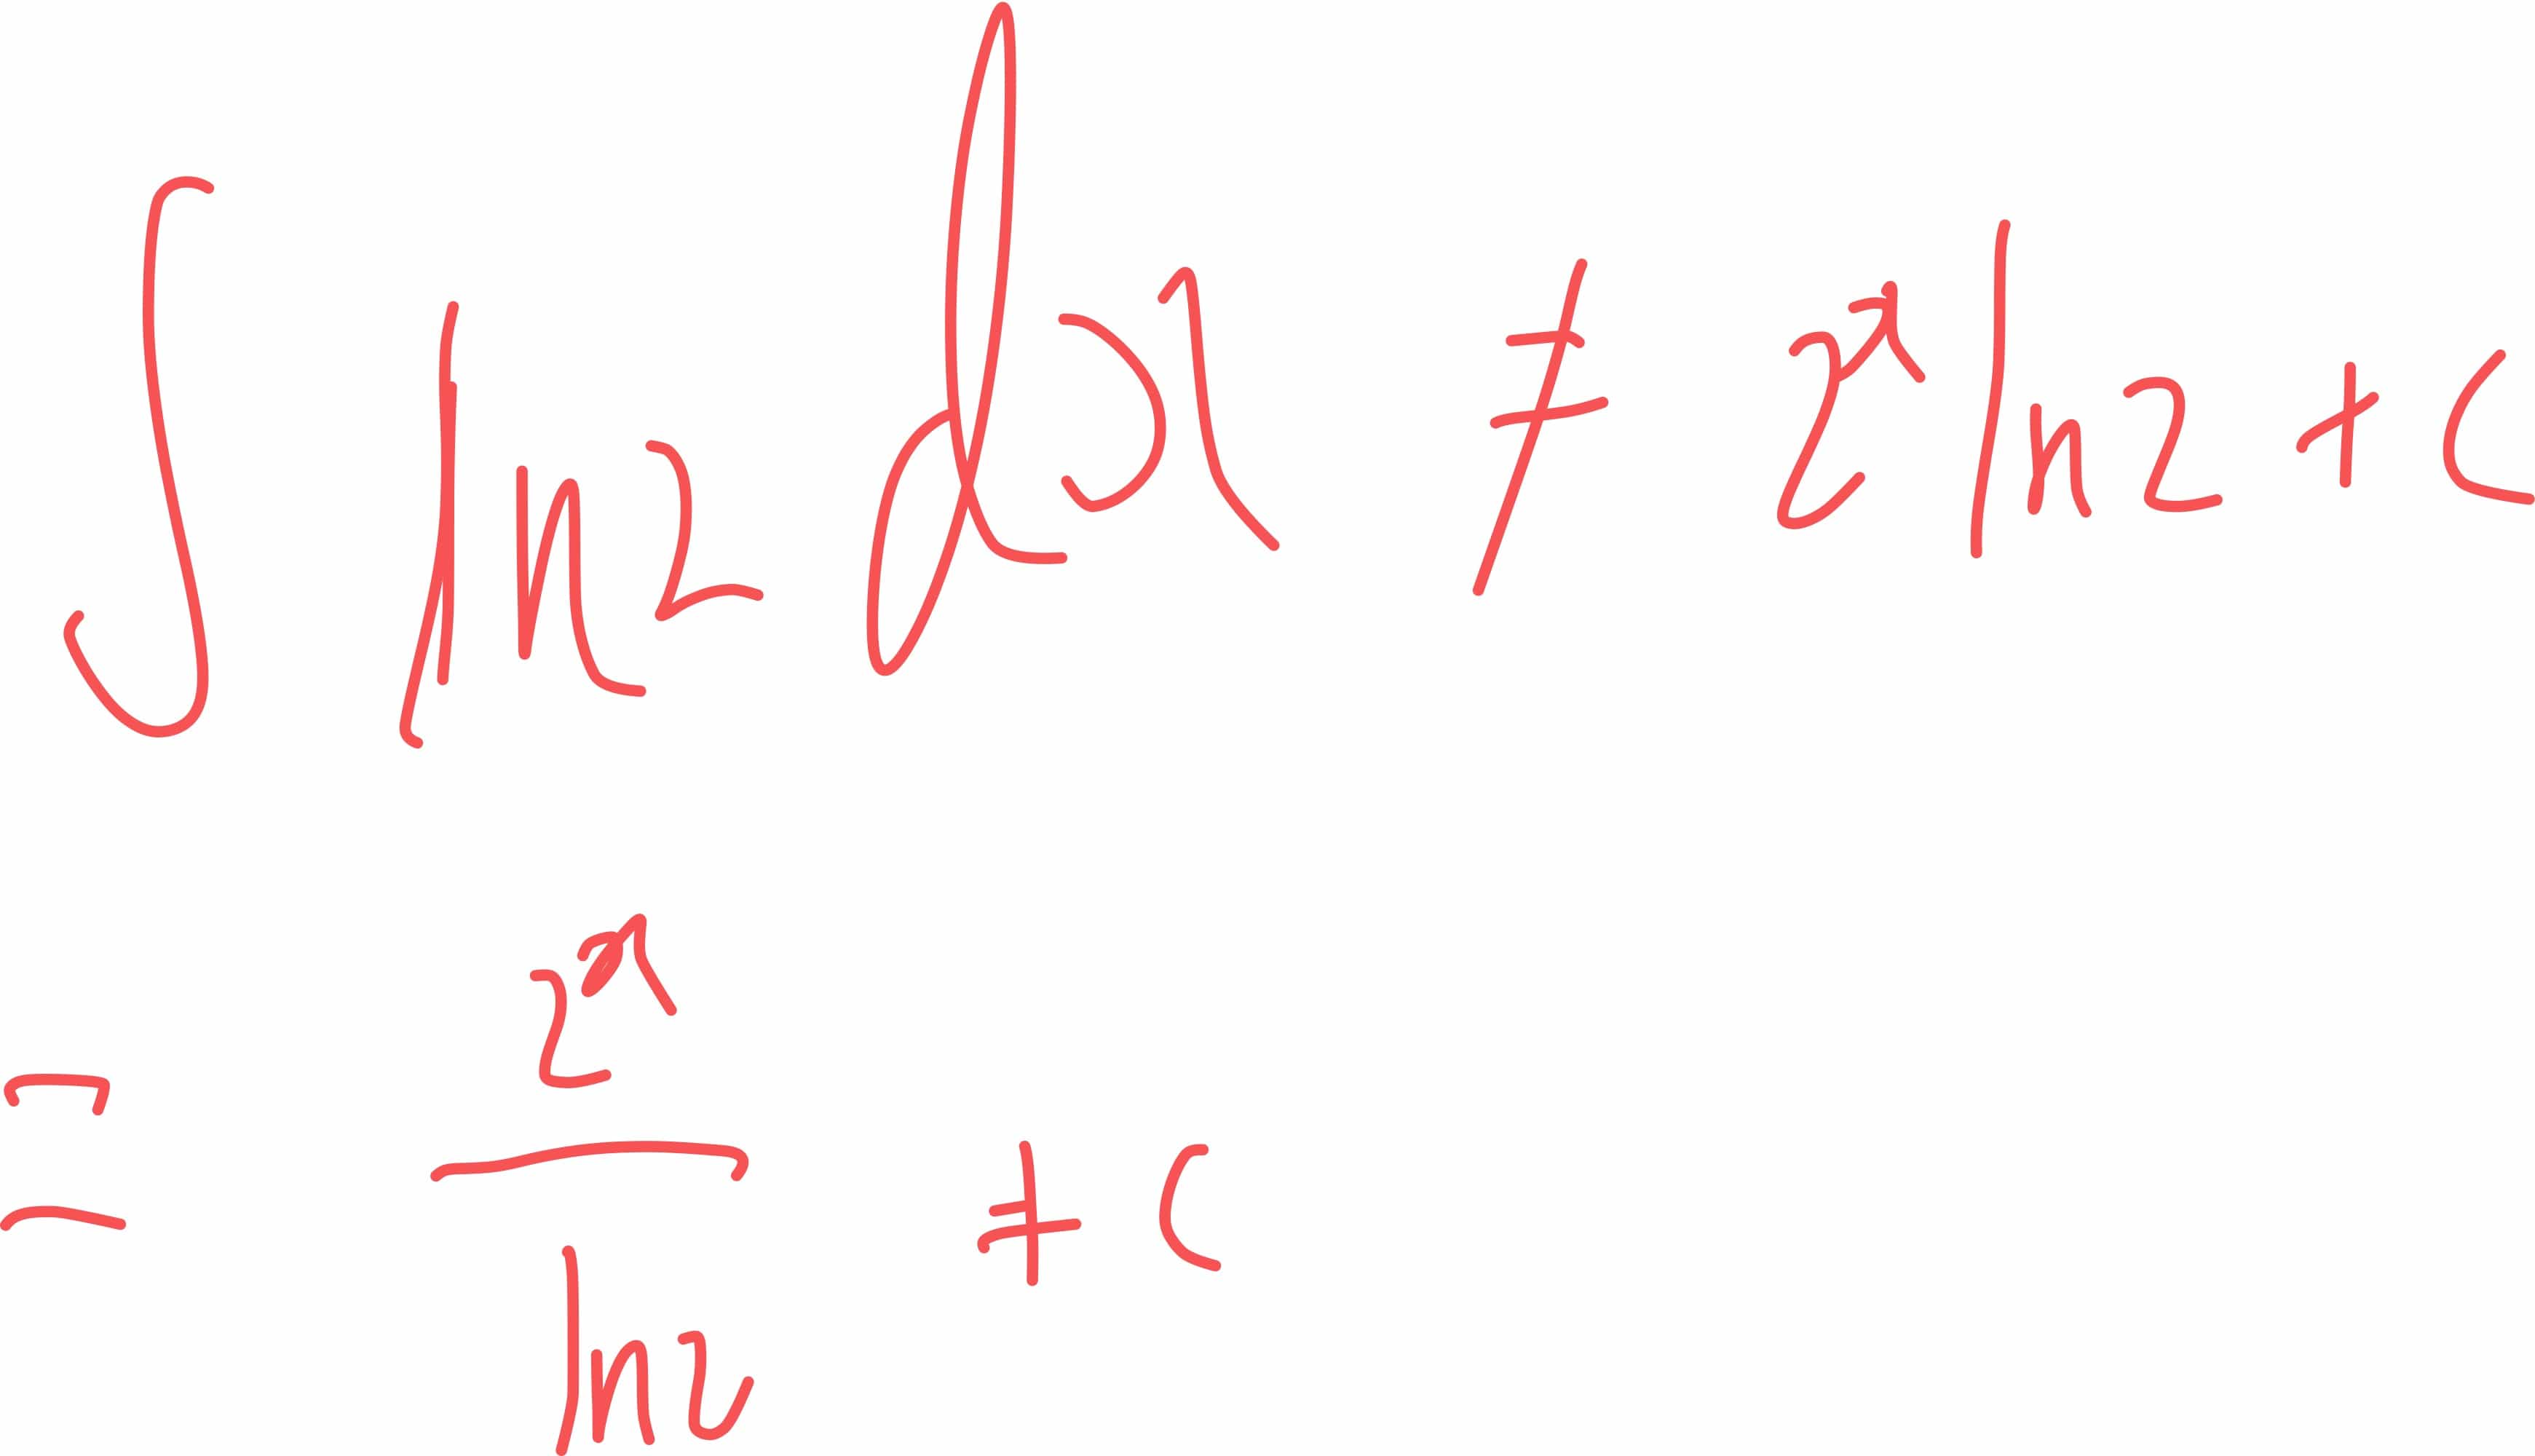 ∫ ln2 dx ≠ 2^x ln2 + C
= 2^x / ln2 + C